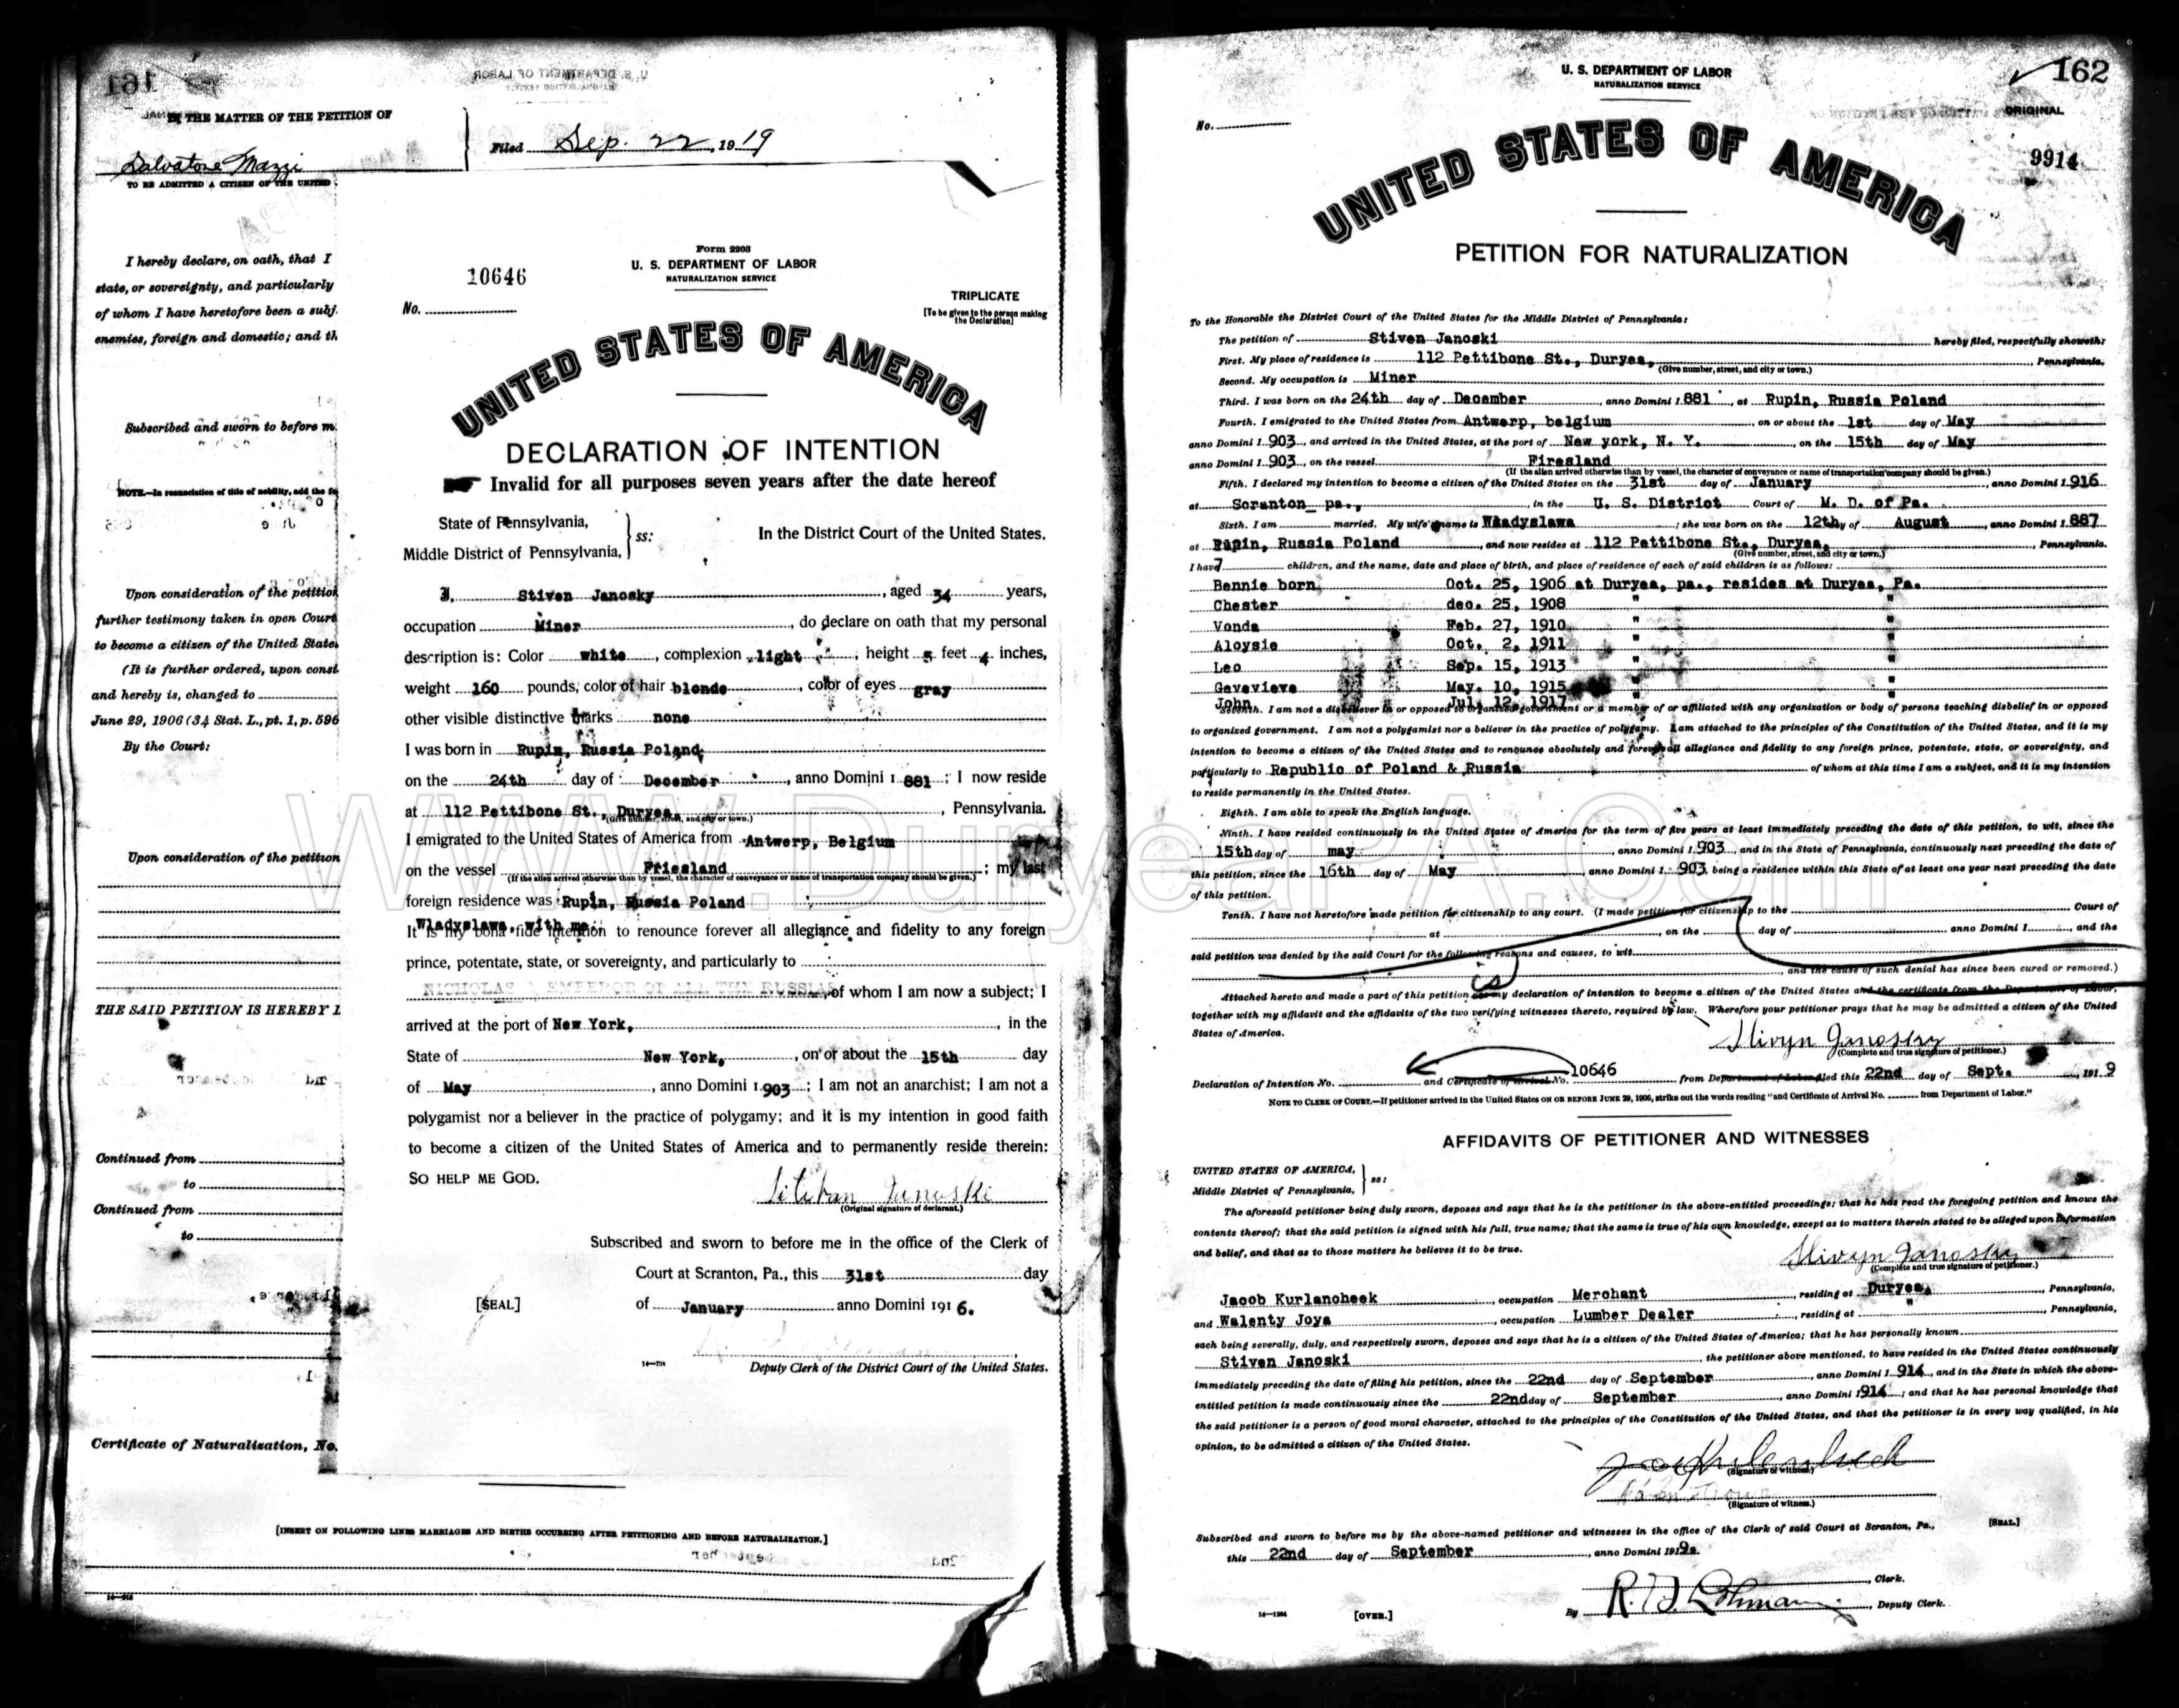 161
IN THE MATTER OF THE PETITION OF
Salvatore Mazzi
TO BE ADMITTED A CITIZEN OF THE UNITED
Filed Sep. 22, 1919
I hereby declare, on oath, that I
state, or sovereignty, and particularly
of whom I have heretofore been a subj.
enemies, foreign and domestic; and th
Subscribed and sworn to before m.
NOTE.—In renunciation of title of nobility, add the fo
Upon consideration of the petition
further testimony taken in open Court
to become a citizen of the United State.
(It is further ordered, upon consi
and hereby is, changed to
June 29, 1906 (34 Stat. L., pt. 1, p. 596
By the Court:
Upon consideration of the petition
THE SAID PETITION IS HEREBY
Continued from
to
Continued from
to
Certificate of Naturalization, No.
[INSERT ON FOLLOWING LINES MARRIAGES AND BIRTHS OCCURRING AFTER PETITIONING AND BEFORE NATURALIZATION.]
Form 2203
10646
U. S. DEPARTMENT OF LABOR
NATURALIZATION SERVICE
No.
TRIPLICATE
[To be given to the person making
the Declaration]
UNITED STATES OF AMERICA
DECLARATION OF INTENTION
Invalid for all purposes seven years after the date hereof
State of Pennsylvania,
Middle District of Pennsylvania,
ss:
In the District Court of the United States.
I, Stiven Janosky, aged 34 years,
occupation Miner, do declare on oath that my personal
description is: Color white, complexion light, height 5 feet 4 inches,
weight 160 pounds, color of hair blonde, color of eyes gray
other visible distinctive marks none
I was born in Rupin, Russia Poland
on the 24th day of December, anno Domini 1 881; I now reside
at 112 Pettibone St., Duryea, Pennsylvania.
(Give number, street, and city or town.)
I emigrated to the United States of America from Antwerp, Belgium
on the vessel Friesland; my last
(If the alien arrived otherwise than by vessel, the character of conveyance or name of transportation company should be given.)
foreign residence was Rupin, Russia Poland
Wladyslawa, with me
It is my bona fide intention to renounce forever all allegiance and fidelity to any foreign
prince, potentate, state, or sovereignty, and particularly to
NICHOLAS EMPEROR OF ALL THE RUSSIAS, of whom I am now a subject; I
arrived at the port of New York, in the
State of New York, on or about the 15th day
of May, anno Domini 1 903; I am not an anarchist; I am not a
polygamist nor a believer in the practice of polygamy; and it is my intention in good faith
to become a citizen of the United States of America and to permanently reside therein:
SO HELP ME GOD.
(Original signature of declarant.)
Subscribed and sworn to before me in the office of the Clerk of
Court at Scranton, Pa., this 31st day
[SEAL]
of January anno Domini 191 6.
14—734
Deputy Clerk of the District Court of the United States.
162
U. S. DEPARTMENT OF LABOR
NATURALIZATION SERVICE
ORIGINAL
No.
9914
UNITED STATES OF AMERICA
PETITION FOR NATURALIZATION
To the Honorable the District Court of the United States for the Middle District of Pennsylvania:
The petition of Stiven Janoski hereby filed, respectfully showeth:
First. My place of residence is 112 Pettibone St., Duryea, Pennsylvania.
(Give number, street, and city or town.)
Second. My occupation is Miner
Third. I was born on the 24th day of December, anno Domini 1 881, at Rupin, Russia Poland
Fourth. I emigrated to the United States from Antwerp, belgium, on or about the 1st day of May
anno Domini 1 903, and arrived in the United States, at the port of New york, N. Y., on the 15th day of May
anno Domini 1 903, on the vessel Firesland
(If the alien arrived otherwise than by vessel, the character of conveyance or name of transportation company should be given.)
Fifth. I declared my intention to become a citizen of the United States on the 31st day of January, anno Domini 1 916
at Scranton pa., in the U. S. District Court of M. D. of Pa.
Sixth. I am married. My wife's name is Wladyslawa; she was born on the 12thy of August, anno Domini 1 887
at Rupin, Russia Poland, and now resides at 112 Pettibone St., Duryea, Pennsylvania.
(Give number, street, and city or town.)
I have 7 children, and the name, date and place of birth, and place of residence of each of said children is as follows:
Bennie born Oct. 25, 1906 at Duryea, pa., resides at Duryea, Pa.
Chester dec. 25, 1908 " "
Vonda Feb. 27, 1910 " "
Aloysie Oct. 2, 1911 " "
Leo Sep. 15, 1913 " "
Gevevieve May. 10, 1915 " "
John Jul. 12, 1917 " "
Seventh. I am not a disbeliever in or opposed to organized government or a member of or affiliated with any organization or body of persons teaching disbelief in or opposed
to organized government. I am not a polygamist nor a believer in the practice of polygamy. I am attached to the principles of the Constitution of the United States, and it is my
intention to become a citizen of the United States and to renounce absolutely and forever all allegiance and fidelity to any foreign prince, potentate, state, or sovereignty, and
particularly to Republic of Poland & Russia of whom at this time I am a subject, and it is my intention
to reside permanently in the United States.
Eighth. I am able to speak the English language.
Ninth. I have resided continuously in the United States of America for the term of five years at least immediately preceding the date of this petition, to wit, since the
15th day of may, anno Domini 1 903, and in the State of Pennsylvania, continuously next preceding the date of
this petition, since the 16th day of May, anno Domini 1 903, being a residence within this State of at least one year next preceding the date
of this petition.
Tenth. I have not heretofore made petition for citizenship to any court. (I made petition for citizenship to the Court of
at, on the day of anno Domini 1, and the
said petition was denied by the said Court for the following reasons and causes, to wit
, and the cause of such denial has since been cured or removed.)
is
Attached hereto and made a part of this petition are my declaration of intention to become a citizen of the United States and the certificate from the Department of Labor,
together with my affidavit and the affidavits of the two verifying witnesses thereto, required by law. Wherefore your petitioner prays that he may be admitted a citizen of the United
States of America.
Stivyn Janosky
(Complete and true signature of petitioner.)
Declaration of Intention No. and Certificate of Arrival No. 10646 from Department of Labor filed this 22nd day of Sept., 191 9
NOTE TO CLERK OF COURT.—If petitioner arrived in the United States ON OR BEFORE JUNE 29, 1906, strike out the words reading "and Certificate of Arrival No. from Department of Labor."
AFFIDAVITS OF PETITIONER AND WITNESSES
UNITED STATES OF AMERICA,
Middle District of Pennsylvania,
ss:
The aforesaid petitioner being duly sworn, deposes and says that he is the petitioner in the above-entitled proceedings; that he has read the foregoing petition and knows the
contents thereof; that the said petition is signed with his full, true name; that the same is true of his own knowledge, except as to matters therein stated to be alleged upon information
and belief, and that as to those matters he believes it to be true.
Stivyn Janosky
(Complete and true signature of petitioner.)
Jacob Kurlancheek, occupation Merchant, residing at Duryea, Pennsylvania,
and Walenty Joya, occupation Lumber Dealer, residing at ", Pennsylvania,
each being severally, duly, and respectively sworn, deposes and says that he is a citizen of the United States of America; that he has personally known
Stiven Janoski the petitioner above mentioned, to have resided in the United States continuously
immediately preceding the date of filing his petition, since the 22nd day of September, anno Domini 1 914, and in the State in which the above-
entitled petition is made continuously since the 22nd day of September, anno Domini 1914; and that he has personal knowledge that
the said petitioner is a person of good moral character, attached to the principles of the Constitution of the United States, and that the petitioner is in every way qualified, in his
opinion, to be admitted a citizen of the United States.
(Signature of witness.)
(Signature of witness.)
Subscribed and sworn to before me by the above-named petitioner and witnesses in the office of the Clerk of said Court at Scranton, Pa.,
[SEAL.]
this 22nd day of September, anno Domini 1919.
, Clerk.
14—1204
[OVER.]
By, Deputy Clerk.
WWW.DuryeaPA.Com